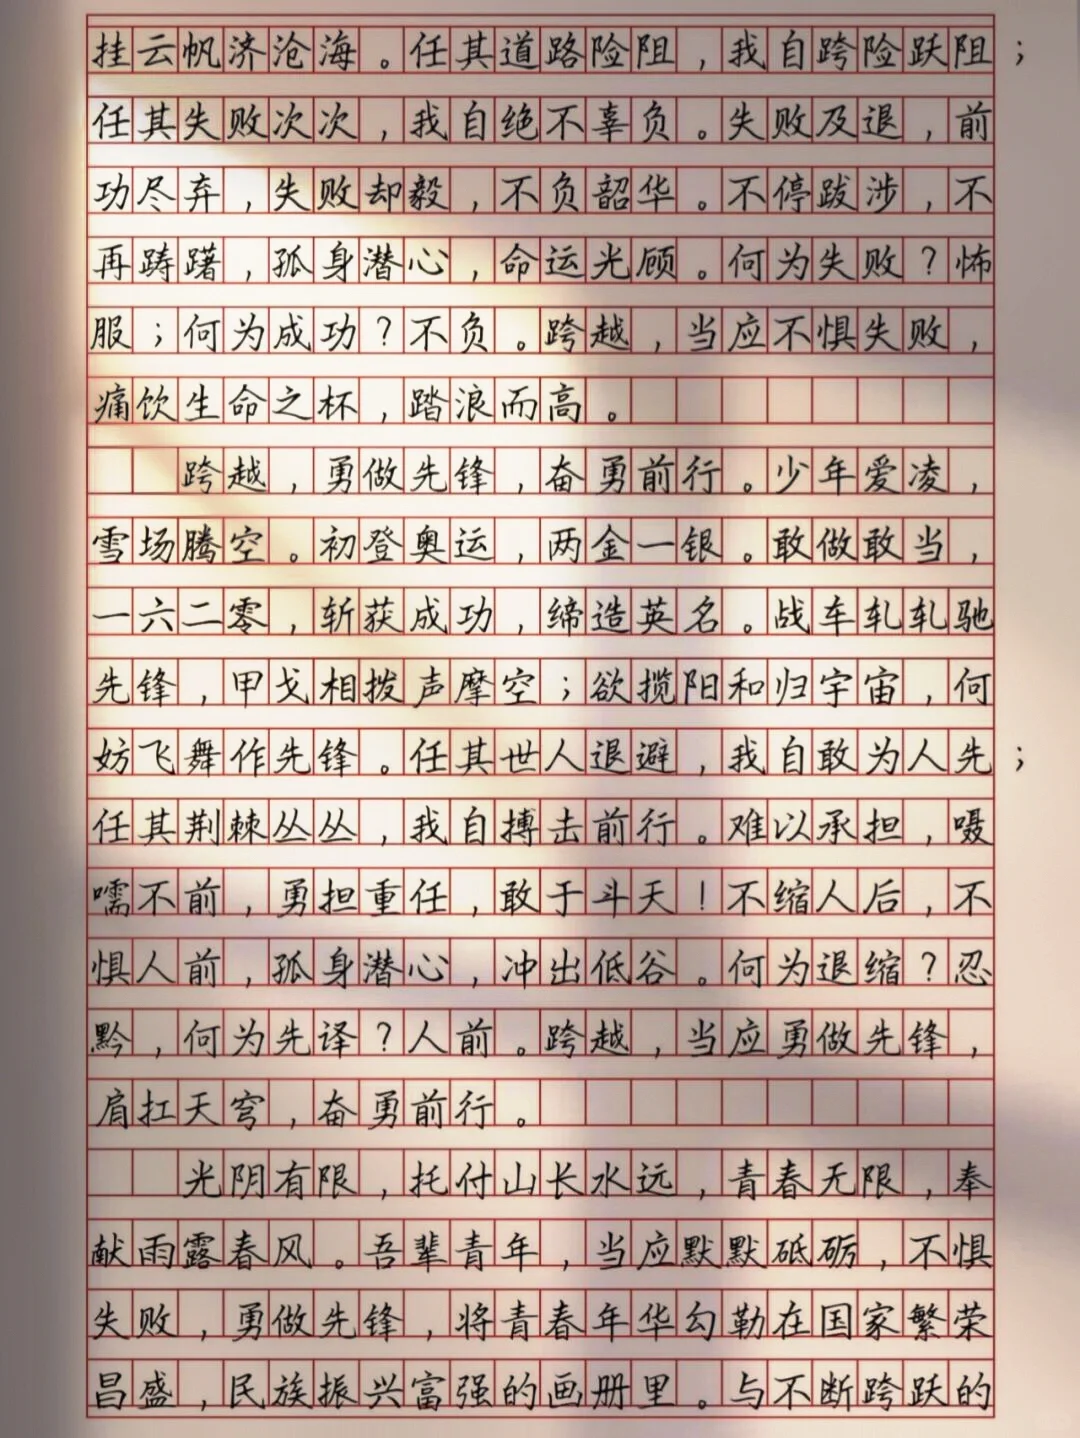 挂云帆济沧海。任其道路险阻，我自跨险跃阻；
任其失败次次，我自绝不辜负。失败及退，前
功尽弃，失败却毅，不负韶华。不停跋涉，不
再踌躇，孤身潜心，命运光顾。何为失败？怖
服；何为成功？不负。跨越，当应不惧失败，
痛饮生命之杯，踏浪而高。
跨越，勇做先锋，奋勇前行。少年爱凌，
雪场腾空。初登奥运，两金一银。敢做敢当，
一六二零，斩获成功，缔造英名。战车轧轧驰
先锋，甲戈相拨声摩空；欲揽阳和归宇宙，何
妨飞舞作先锋。任其世人退避，我自敢为人先；
任其荆棘丛丛，我自搏击前行。难以承担，嗫
嚅不前，勇担重任，敢于斗天！不缩人后，不
惧人前，孤身潜心，冲出低谷。何为退缩？忍
黔，何为先译？人前。跨越，当应勇做先锋，
肩扛天穹，奋勇前行。
光阴有限，托付山长水远，青春无限，奉
献雨露春风。吾辈青年，当应默默砥砺，不惧
失败，勇做先锋，将青春年华勾勒在国家繁荣
昌盛，民族振兴富强的画册里。与不断跨跃的